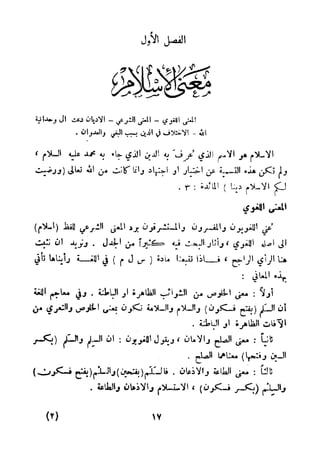 الفصل الأول
معنى الإسلام
المعنى اللغوي – المعنى الشرعي – دعوة الأديان الى وحدانية
الله – الاختلاف في الدين بسبب البغي والعدوان .
الإسلام هو الاسم الذي عرف به الدين الذي جاء به محمد عليه السلام ،
ولم تكن هذه التسمية عن اختيار او اجتهاد وانما كانت من الله تعالى ( ورضيت
لكم الإسلام دينا ) المائدة : ٣ .
المعنى اللغوي
عني اللغويون والمفسرون والمستشرقون برد المعنى الشرعي للفظ (الإسلام)
الى أصله اللغوي ، وأثار البحث فيه كثيراً من الجدل . ونريد أن نثبت
هنا الرأي الراجح ، فإذا تتبعنا مادة ( س ل م ) في اللغة وجدناها تأتي
بهذه المعاني :
أولاً : معنى الخلوص من الشوائب الظاهرة او الباطنة . وفي معاجم اللغة
أن السَلْم (بفتح فسكون) والسلام والسلامة تكون بمعنى الخلوص والتعري من
الآفات الظاهرة او الباطنة .
ثانياً : معنى الصلح والأمان ، ويقول اللغويون : ان السِلْم والسَلْم (بكسر
السين وفتحها) معناهما الصلح .
ثالثاً : معنى الطاعة والاذعان . فالسَلَم(بفتحتين)والسَلْم(بفتح فسكون)
والسِلْم (بكسر فسكون) ، والاستسلام والاذعان والطاعة .
١٧
(٢)